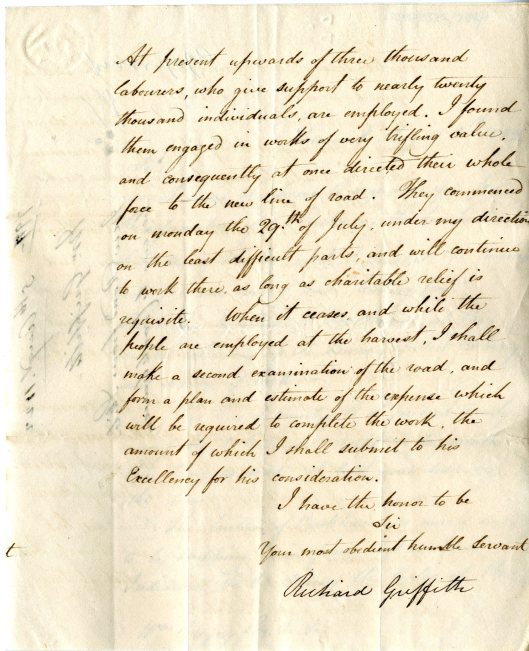 At present upwards of three thousand
labourers, who give support to nearly twenty
thousand individuals, are employed. I found
them engaged in works of very trifling value,
and consequently at once directed their whole
force to the new line of road. They commenced
on monday the 29th of July, under my direction
on the least difficult parts, and will continue
to work there, as long as charitable relief is
requisite. When it ceases, and while the
people are employed at the harvest, I shall
make a second examination of the road, and
form a plan and estimate of the expense which
will be required to complete the work, the
amount of which I shall submit to his
Excellency for his consideration.
I have the honor to be
Sir
Your most obedient humble servant
Richard Griffith
t